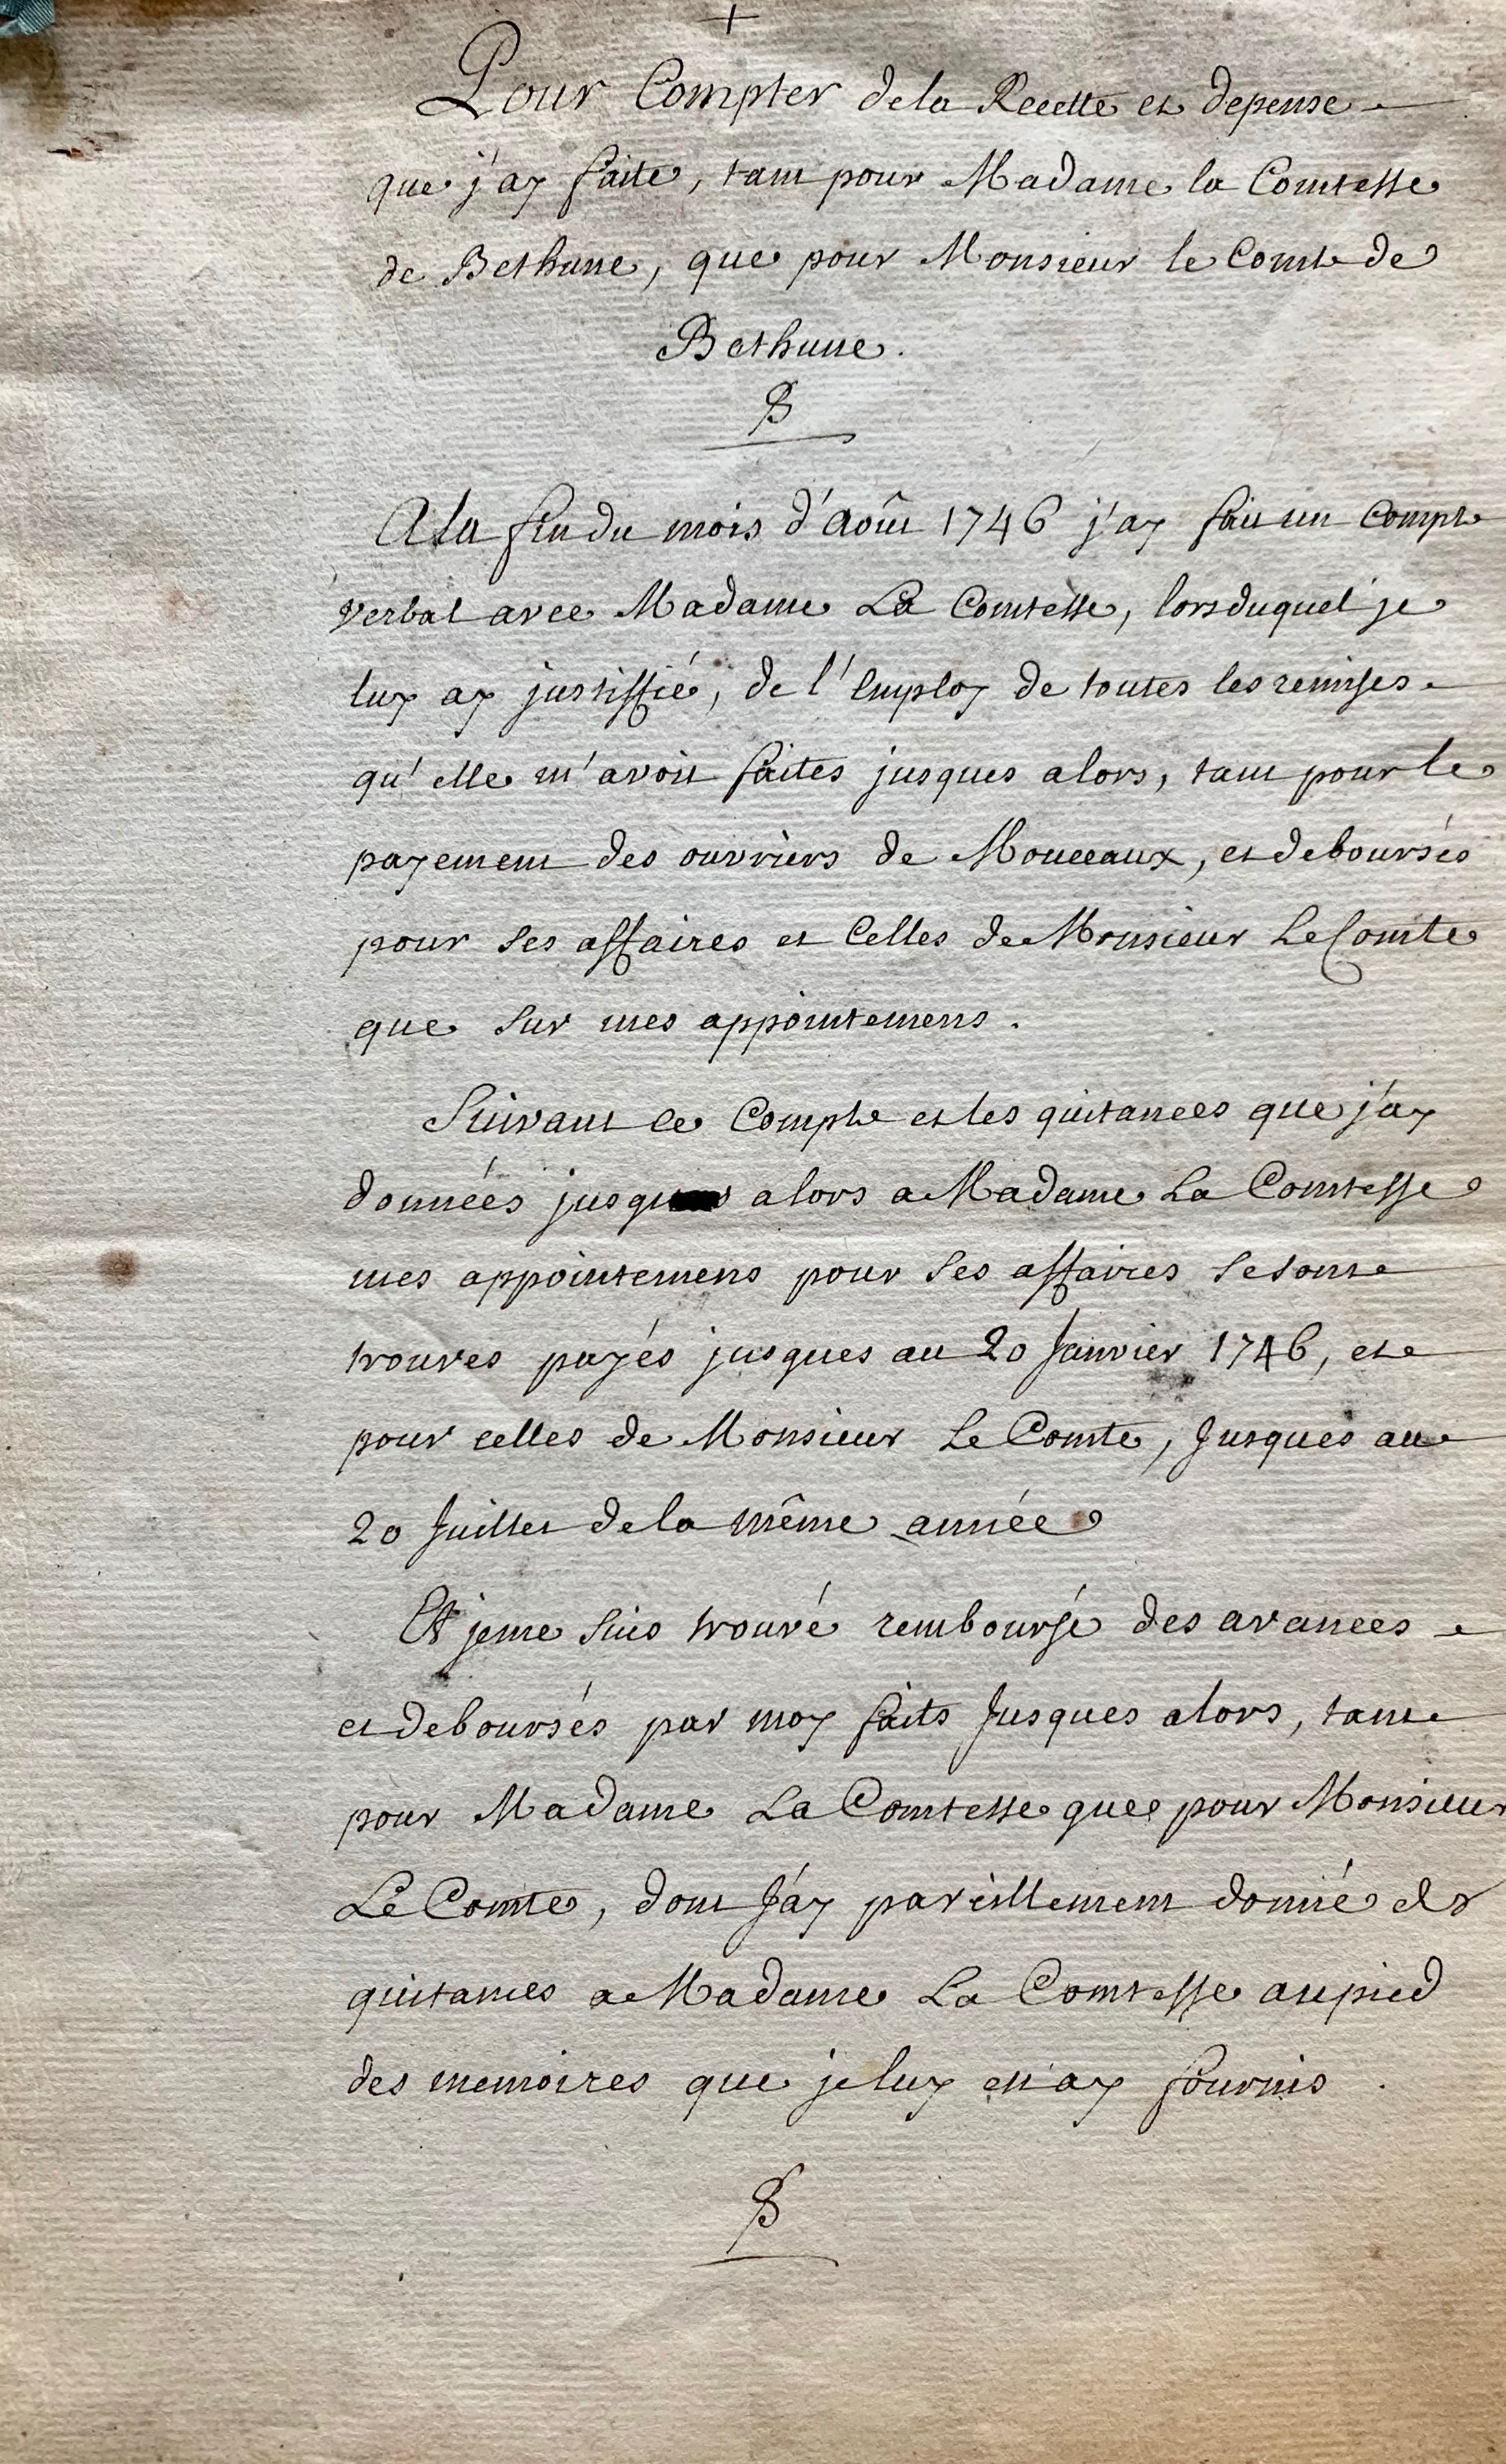 +
Pour Compter de la Recette et depense
que j'ay faite, tant pour Madame la Comtesse
de Bethune, que pour Monsieur le Comte de
Bethune.
A la fin du mois d'Août 1746 j'ay fait un Compte
verbal avec Madame La Comtesse, lors duquel je
luy ay justiffié, de l'Employ de toutes les remises
qu'elle m'avoit faites jusques alors, tant pour le
payement des ouvriers de Monceaux, et deboursés
pour ses affaires et Celles de Monsieur Le Comte
que sur mes appointemens.
Suivant ce Compte et les quitances que j'ay
données jusques alors a Madame La Comtesse
mes appointemens pour ses affaires se sont
trouves payés jusques au 20 Janvier 1746, et
pour celles de Monsieur Le Comte, Jusques au
20 Juillet de la même année
Et je me suis trouvé remboursé des avances
et deboursés par moy faits Jusques alors, tant
pour Madame La Comtesse que pour Monsieur
Le Comte, dont J'ay pareillement donné des
quitances a Madame La Comtesse au pied
des memoires que je luy en ay fournis.